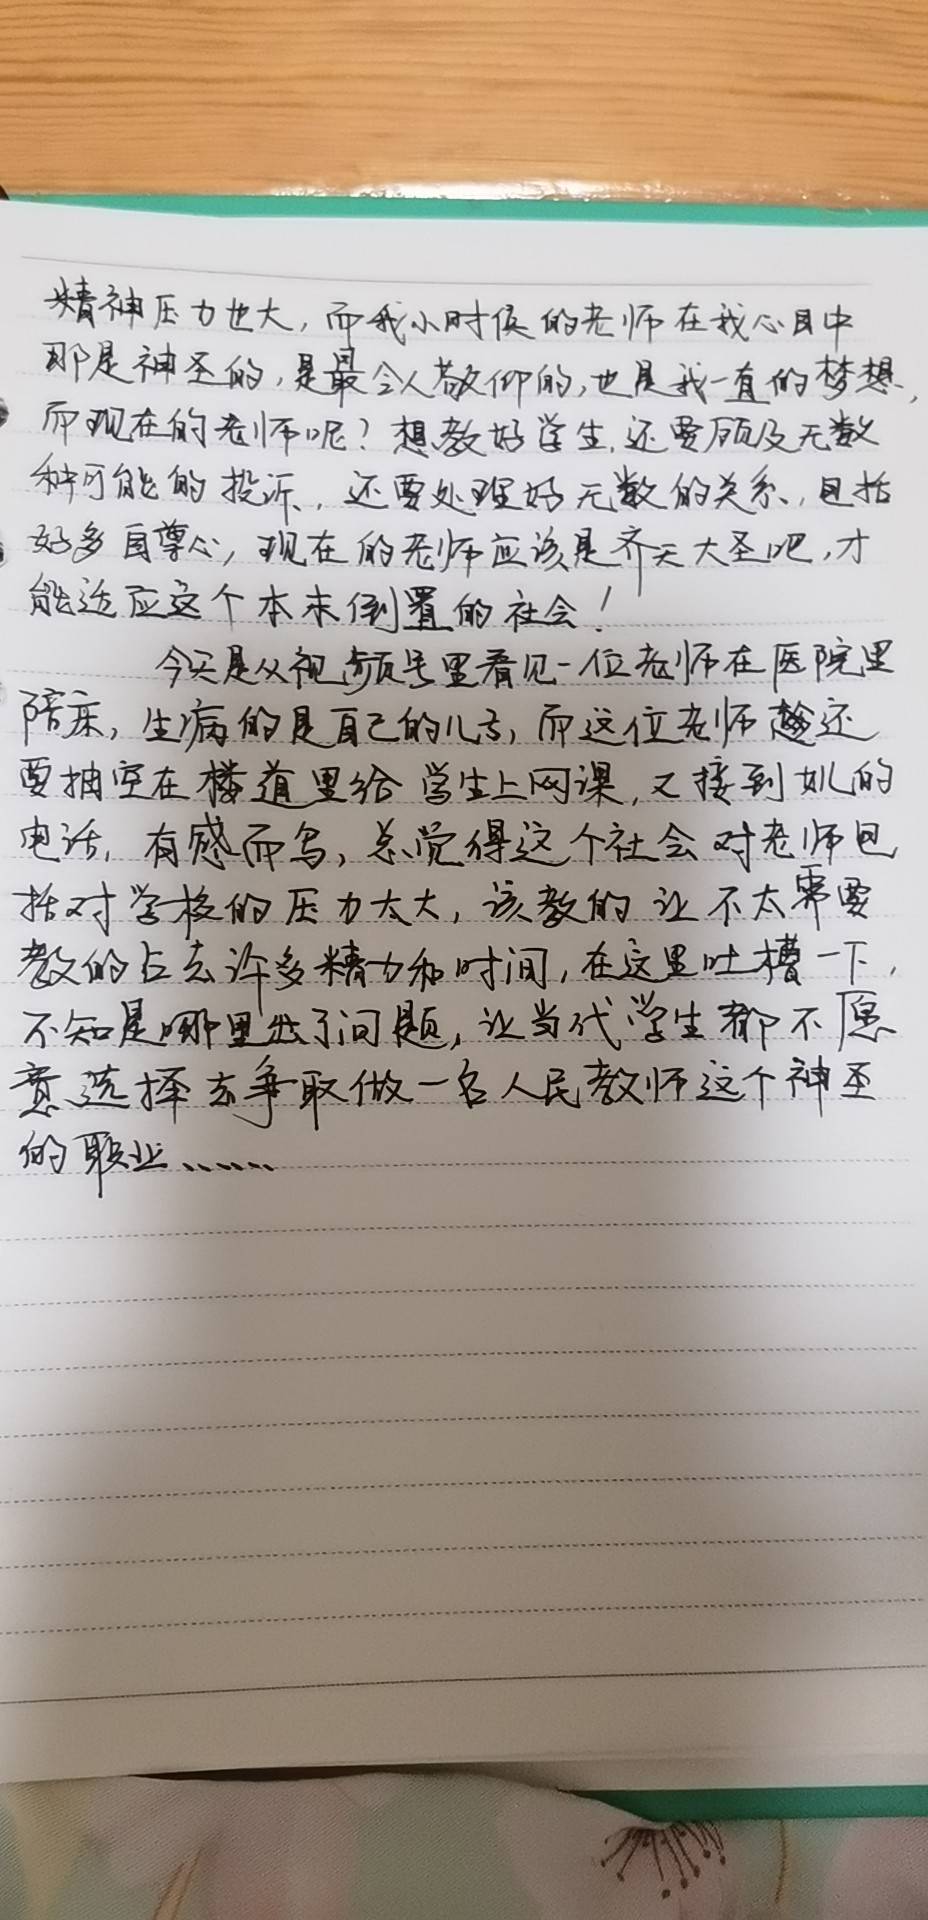 精神压力也大，而我小时候的老师在我心目中
那是神圣的，是最令人敬仰的，也是我一直的梦想，
而现在的老师呢？想教好学生，还要顾及无数
种可能的投诉，还要处理好无数的关系，包括
好多自尊心，现在的老师应该是齐天大圣吧，才
能适应这个本末倒置的社会！
今天是从视频号里看见一位老师在医院里
陪床，生病的是自己的儿子，而这位老师还
要抽空在楼道里给学生上网课，又接到的
电话，有感而写，总觉得这个社会对老师包
括对学校的压力太大，该教的让不太需要
教的占去许多精力和时间，在这里吐槽一下，
不知是哪里出了问题，让当代学生都不愿
意选择去争取做一名人民教师这个神圣
的职业……